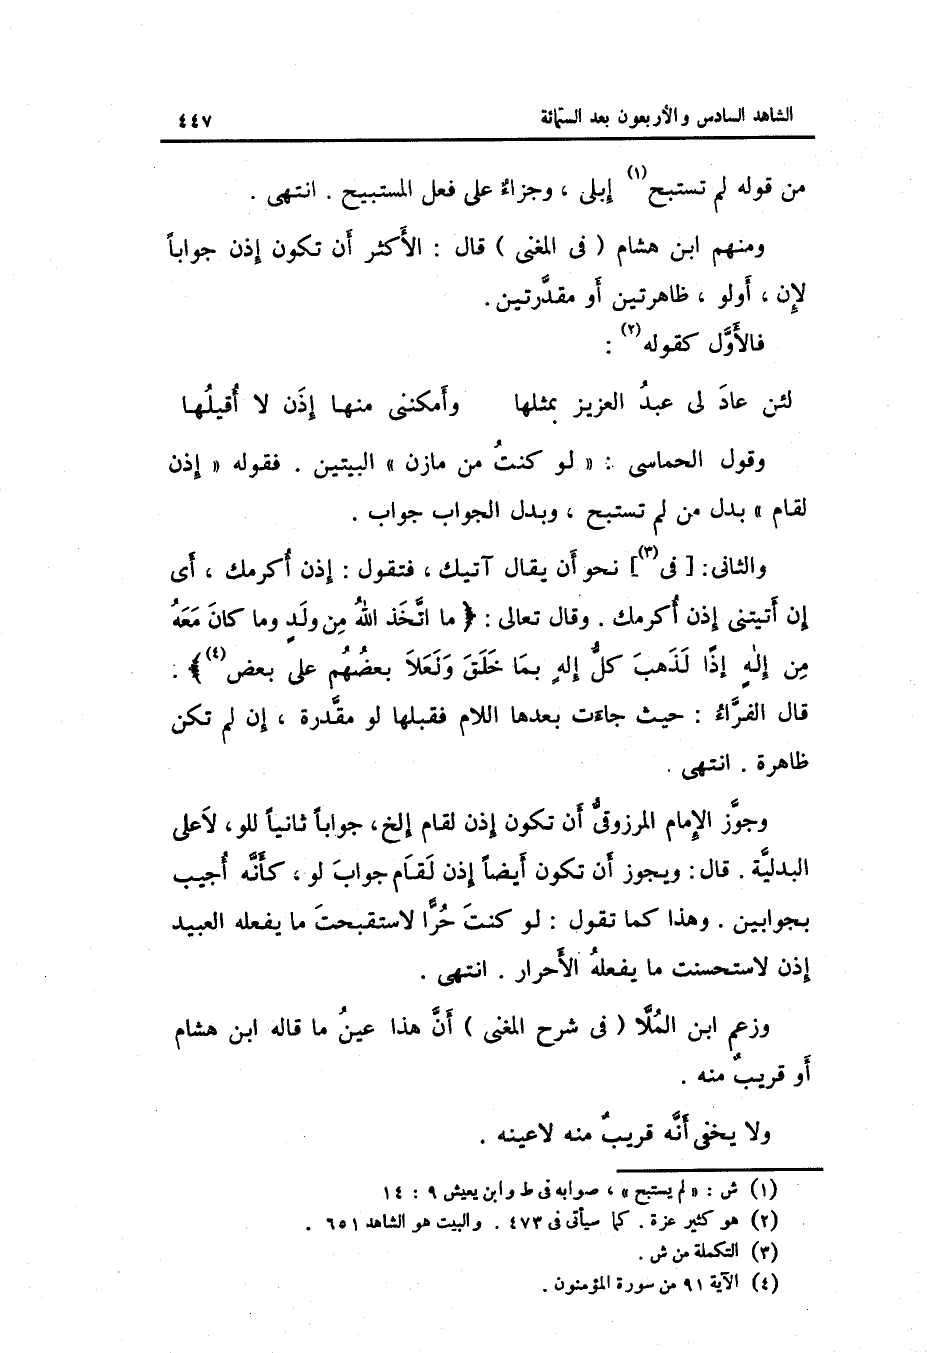 الشاهد السادس والأربعون بعد الستمائة ٤٤٧
من قوله لم تستبح(١) إبلى ، وجزاءٌ على فعل المستبيح . انتهى .
ومنهم ابن هشام ( فى المغنى ) قال : الأَكثر أَن تكون إِذن جواباً
لإِن ، أَولو ، ظاهرتين أَو مقدَّرتين .
فالأَوَّل كقوله(٢) :
لئن عادَ لى عبدُ العزيز بمثلها وأَمكننى منها إِذَن لا أُقيلُها
وقول الحماسى : « لو كنتُ من مازن » البيتين . فقوله « إذن
لقام » بدل من لم تستبح ، وبدل الجواب جواب .
والثانى : [ فى(٣)] نحو أَن يقال آتيك ، فتقول : إِذن أُكرمك ، أَى
إِن أَتيتنى إِذن أُكرمك . وقال تعالى : ﴿ ما اتَّخَذ اللهُ مِن ولَدٍ وما كانَ مَعَهُ
مِن إِلٰهٍ إِذًا لَذَهبَ كلُّ إِلهٍ بمَا خَلَقَ وَلَعَلاَ بعضُهُم على بعض(٤)﴾ .
قال الفرَّاءُ : حيث جاءت بعدها اللام فقبلها لو مقَّدرة ، إِن لم تكن
ظاهرة . انتهى .
وجوَّز الإِمام المرزوقىُّ أَن تكون إِذن لقام إِلخ، جواباً ثانياً للو، لاَعلى
البدليَّة . قال: ويجوز أَن تكون أَيضاً إِذن لَقَام جوابَ لو ، كأَنَّه أُجيب
بجوابين . وهذا كما تقول : لو كنتَ حُرًّا لاستقبحتَ ما يفعله العبيد
إِذن لاستحسنت ما يفعلهُ الأَحرار . انتهى .
وزعم ابن المُلَّا ( فى شرح المغنى ) أَنَّ هذا عينُ ما قاله ابن هشام
أَو قريبٌ منه .
ولا يخفى أَنَّه قريبٌ منه لاعينه .
(١) ش : « لم يستبح » ، صوابه فى ط وابن يعيش ٩ : ١٤
(٢) هو كثير عزة . كما سيأتى فى ٤٧٣ . والبيت هو الشاهد ٦٥١ .
(٣) التكملة من ش .
(٤) الآية ٩١ من سورة المؤمنون .